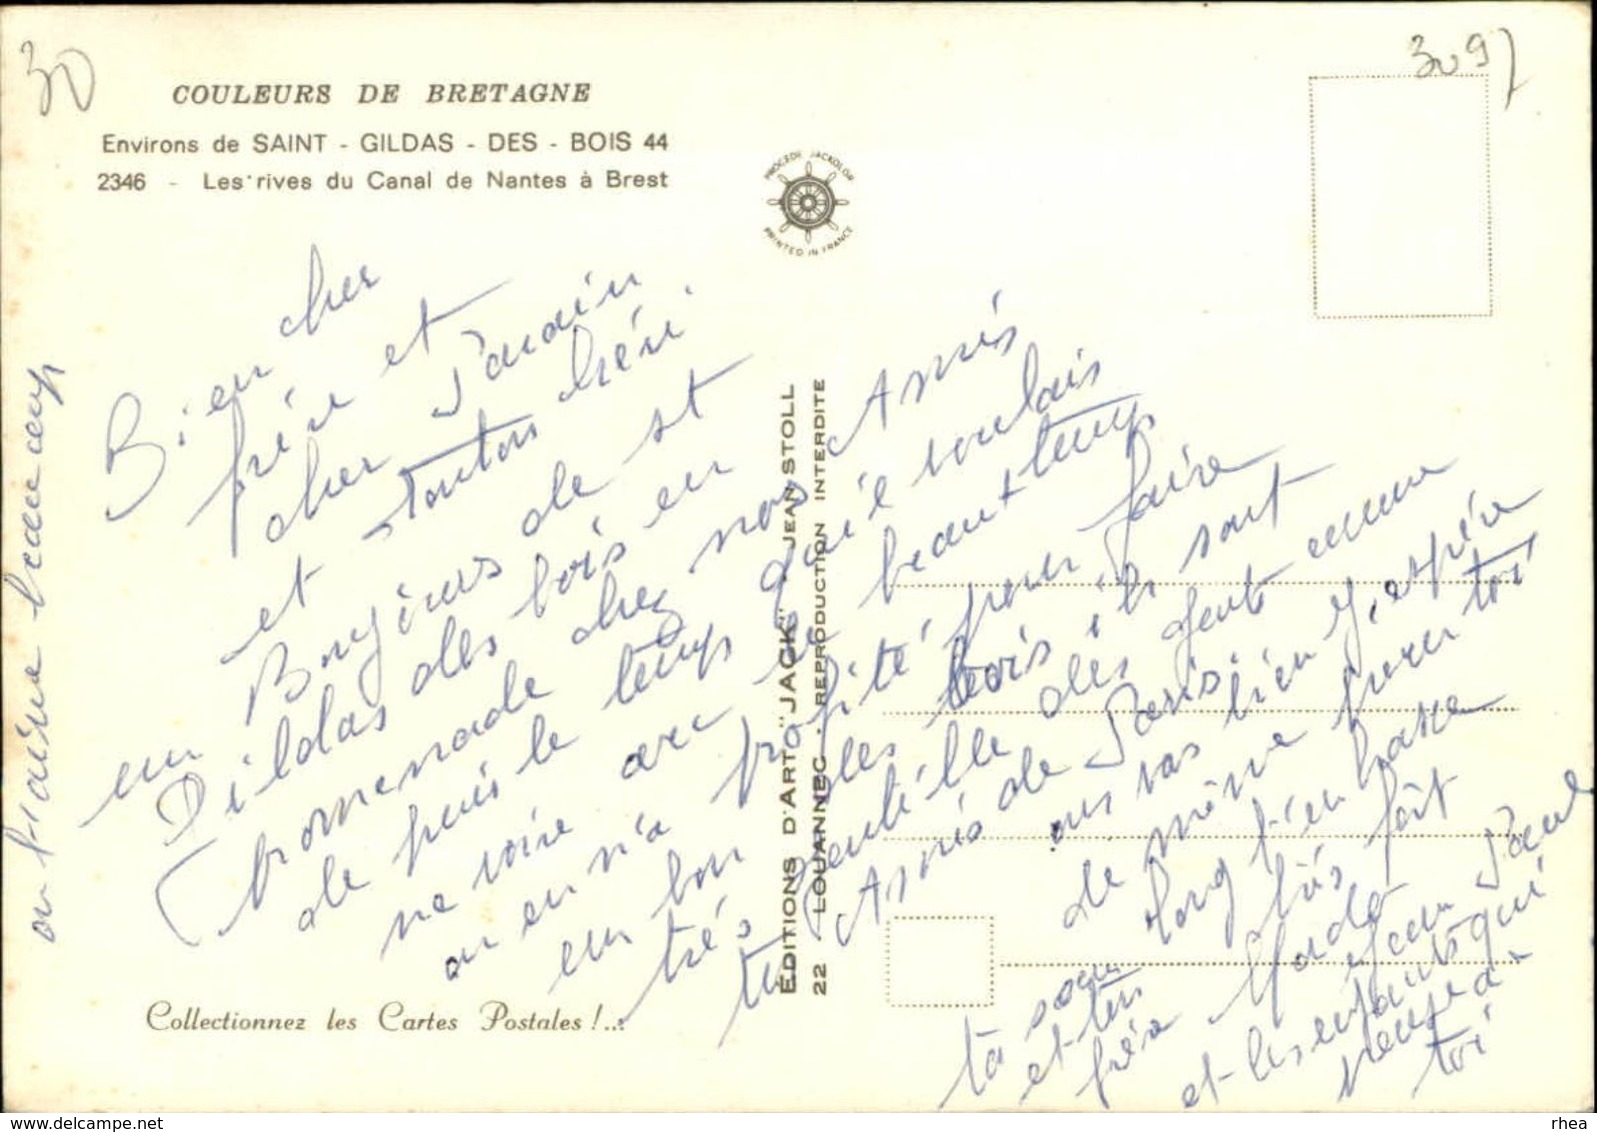 30
309
COULEURS DE BRETAGNE
Environs de SAINT - GILDAS - DES - BOIS 44
2346 - Les rives du Canal de Nantes à Brest
PROCÉDÉ JACKOLOR
PRINTED IN FRANCE
Bien cher
frère et
cher
et tonton
un Bonjours de st
Gildas des bois en
promenade chez nos Amis
de puis le temps qu'il voulais
ne voire avec le beau temps
on en n'a profité pour faire
un bon les bois ils sont
très gentille des gents comme
tu Amis de Paris.
ous vas bien J'espère
de même pour toi
long bien
fait
ta soeur
et ton
frère Jean Paul
et les enfants qui
pense a
toi
on t'aime beaucoup
ÉDITIONS D'ART "JACK" - JEAN STOLL
22 LOUANNEC - REPRODUCTION INTERDITE
Collectionnez les Cartes Postales !...
rhea